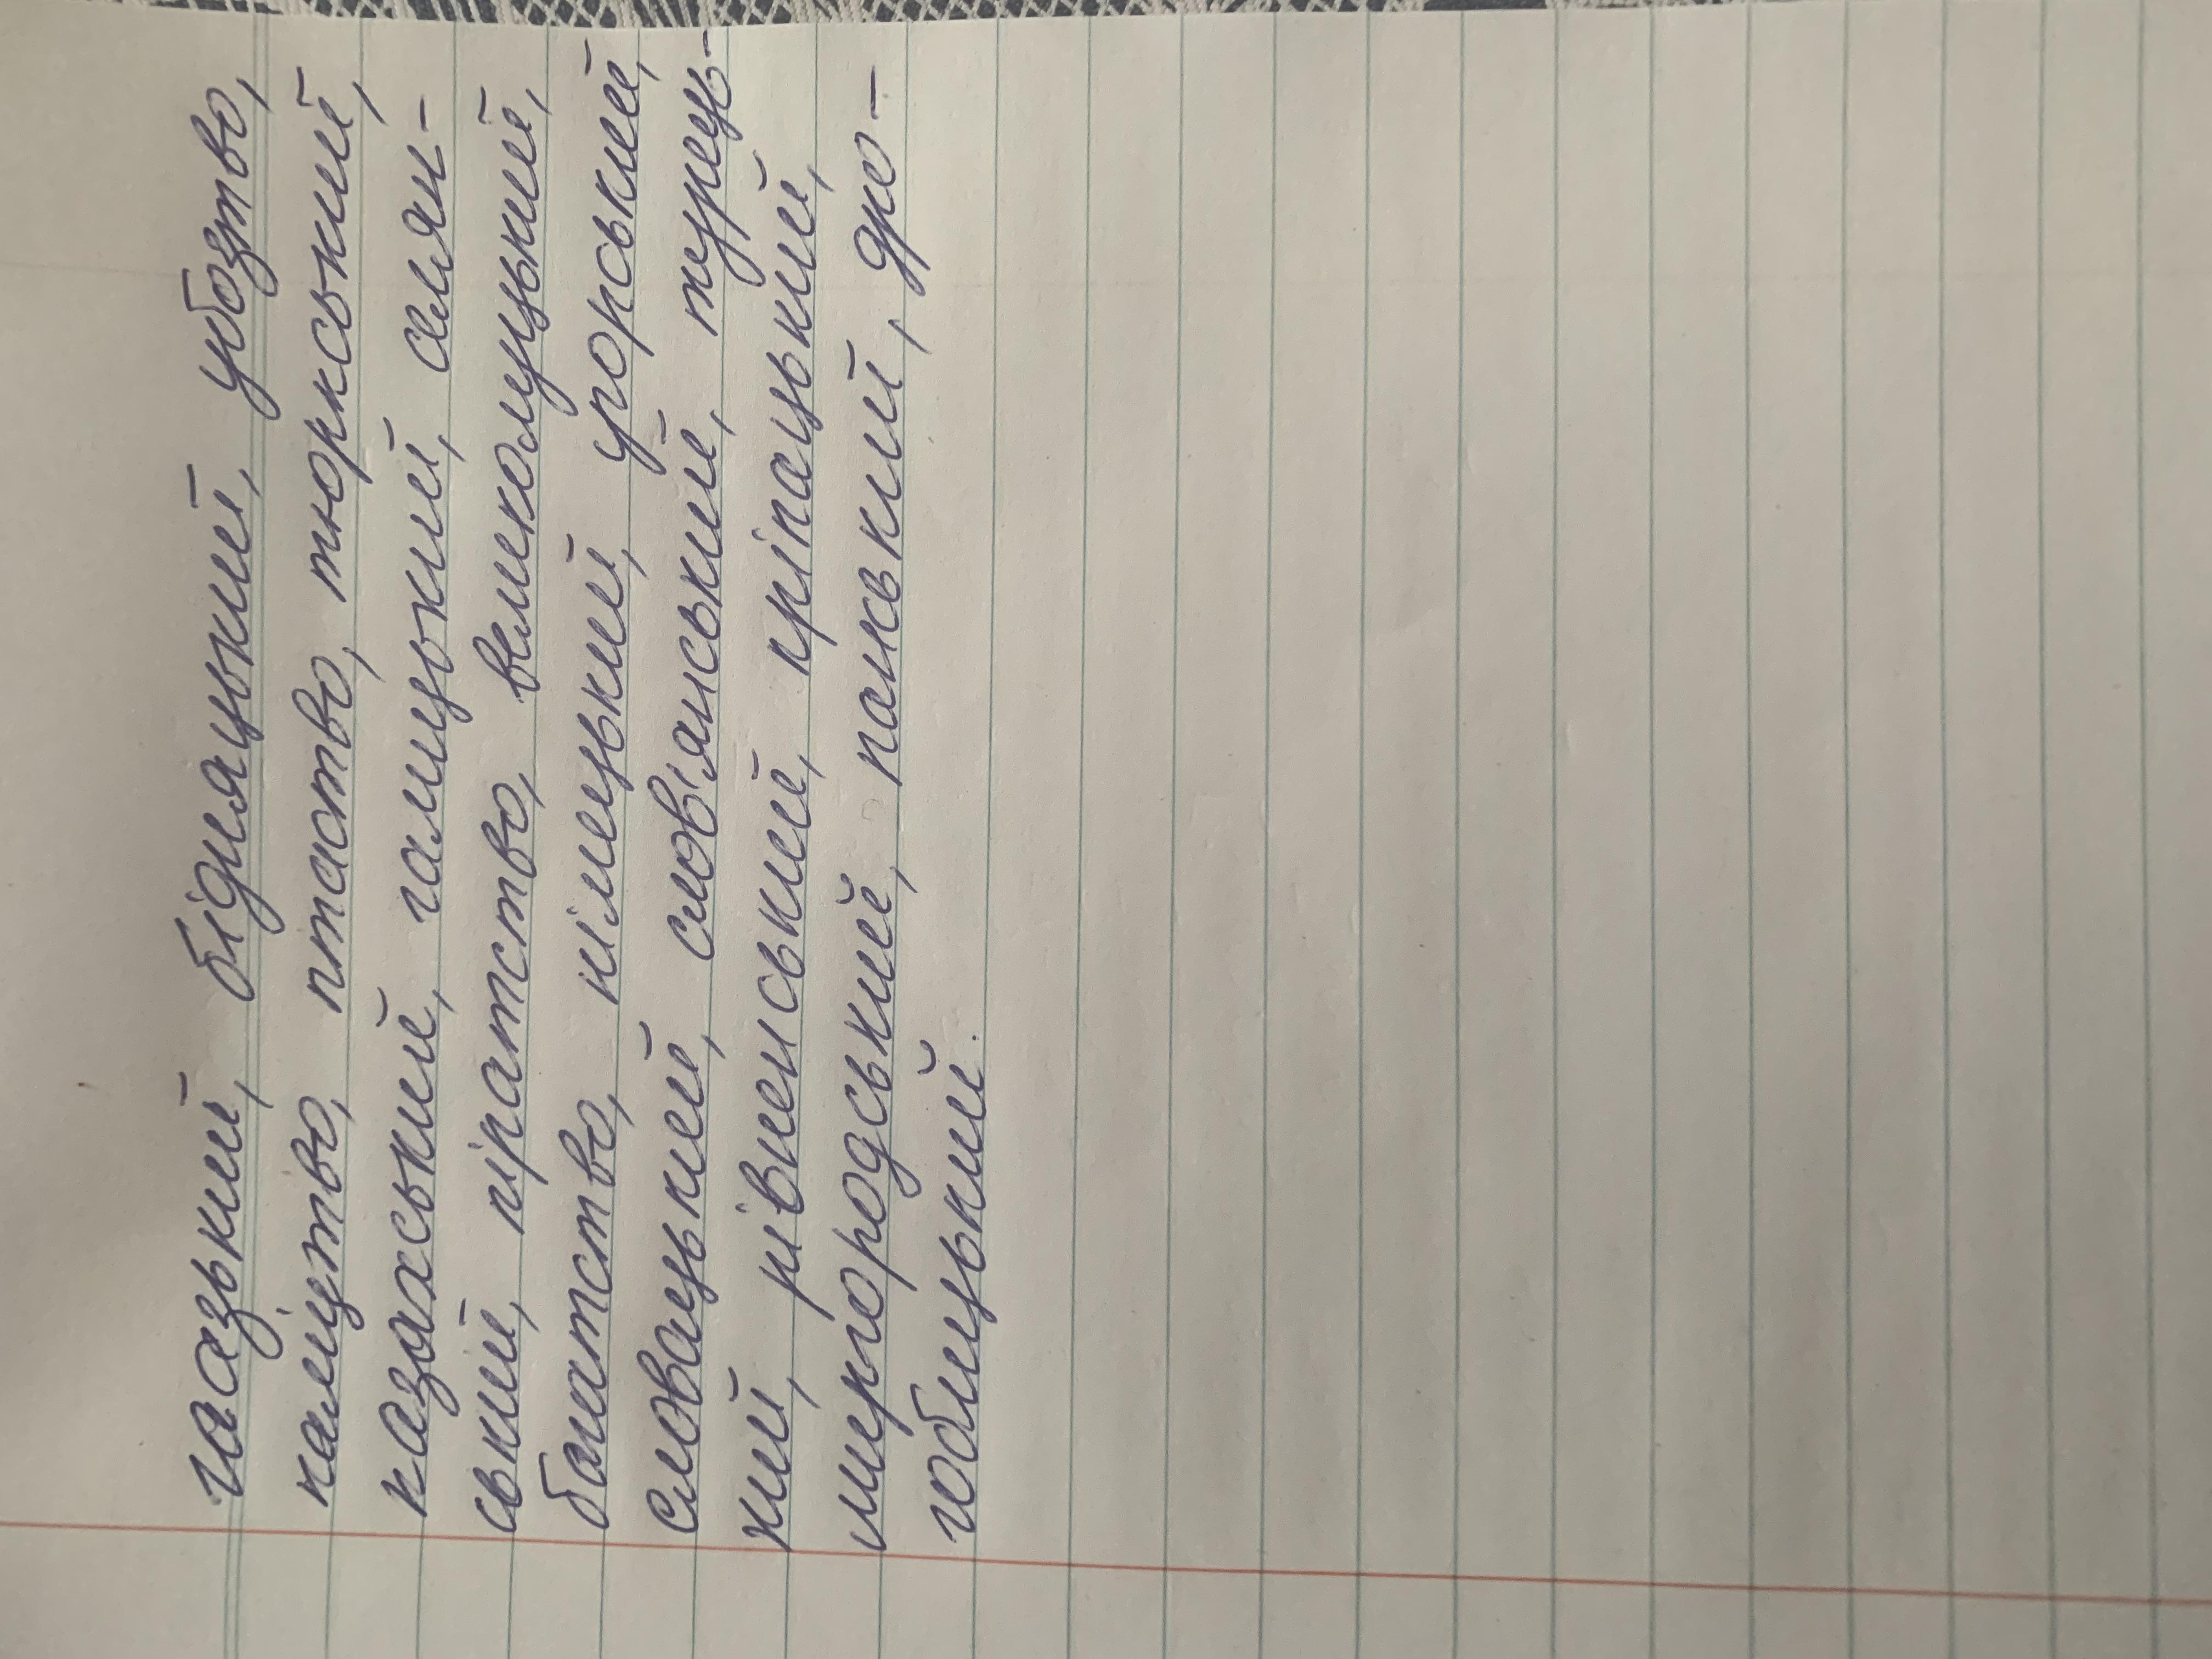 газький, бідняцький, убозтво,
каліцтво, птаство, тюркський,
казахський, галицький, селян-
ський, піратство, великолуцький,
багатство, німецький, угорський,
словацький, слов'янський, турець-
кий, рівненський, кріпацький,
миргородський, панський, дро-
гобицький.